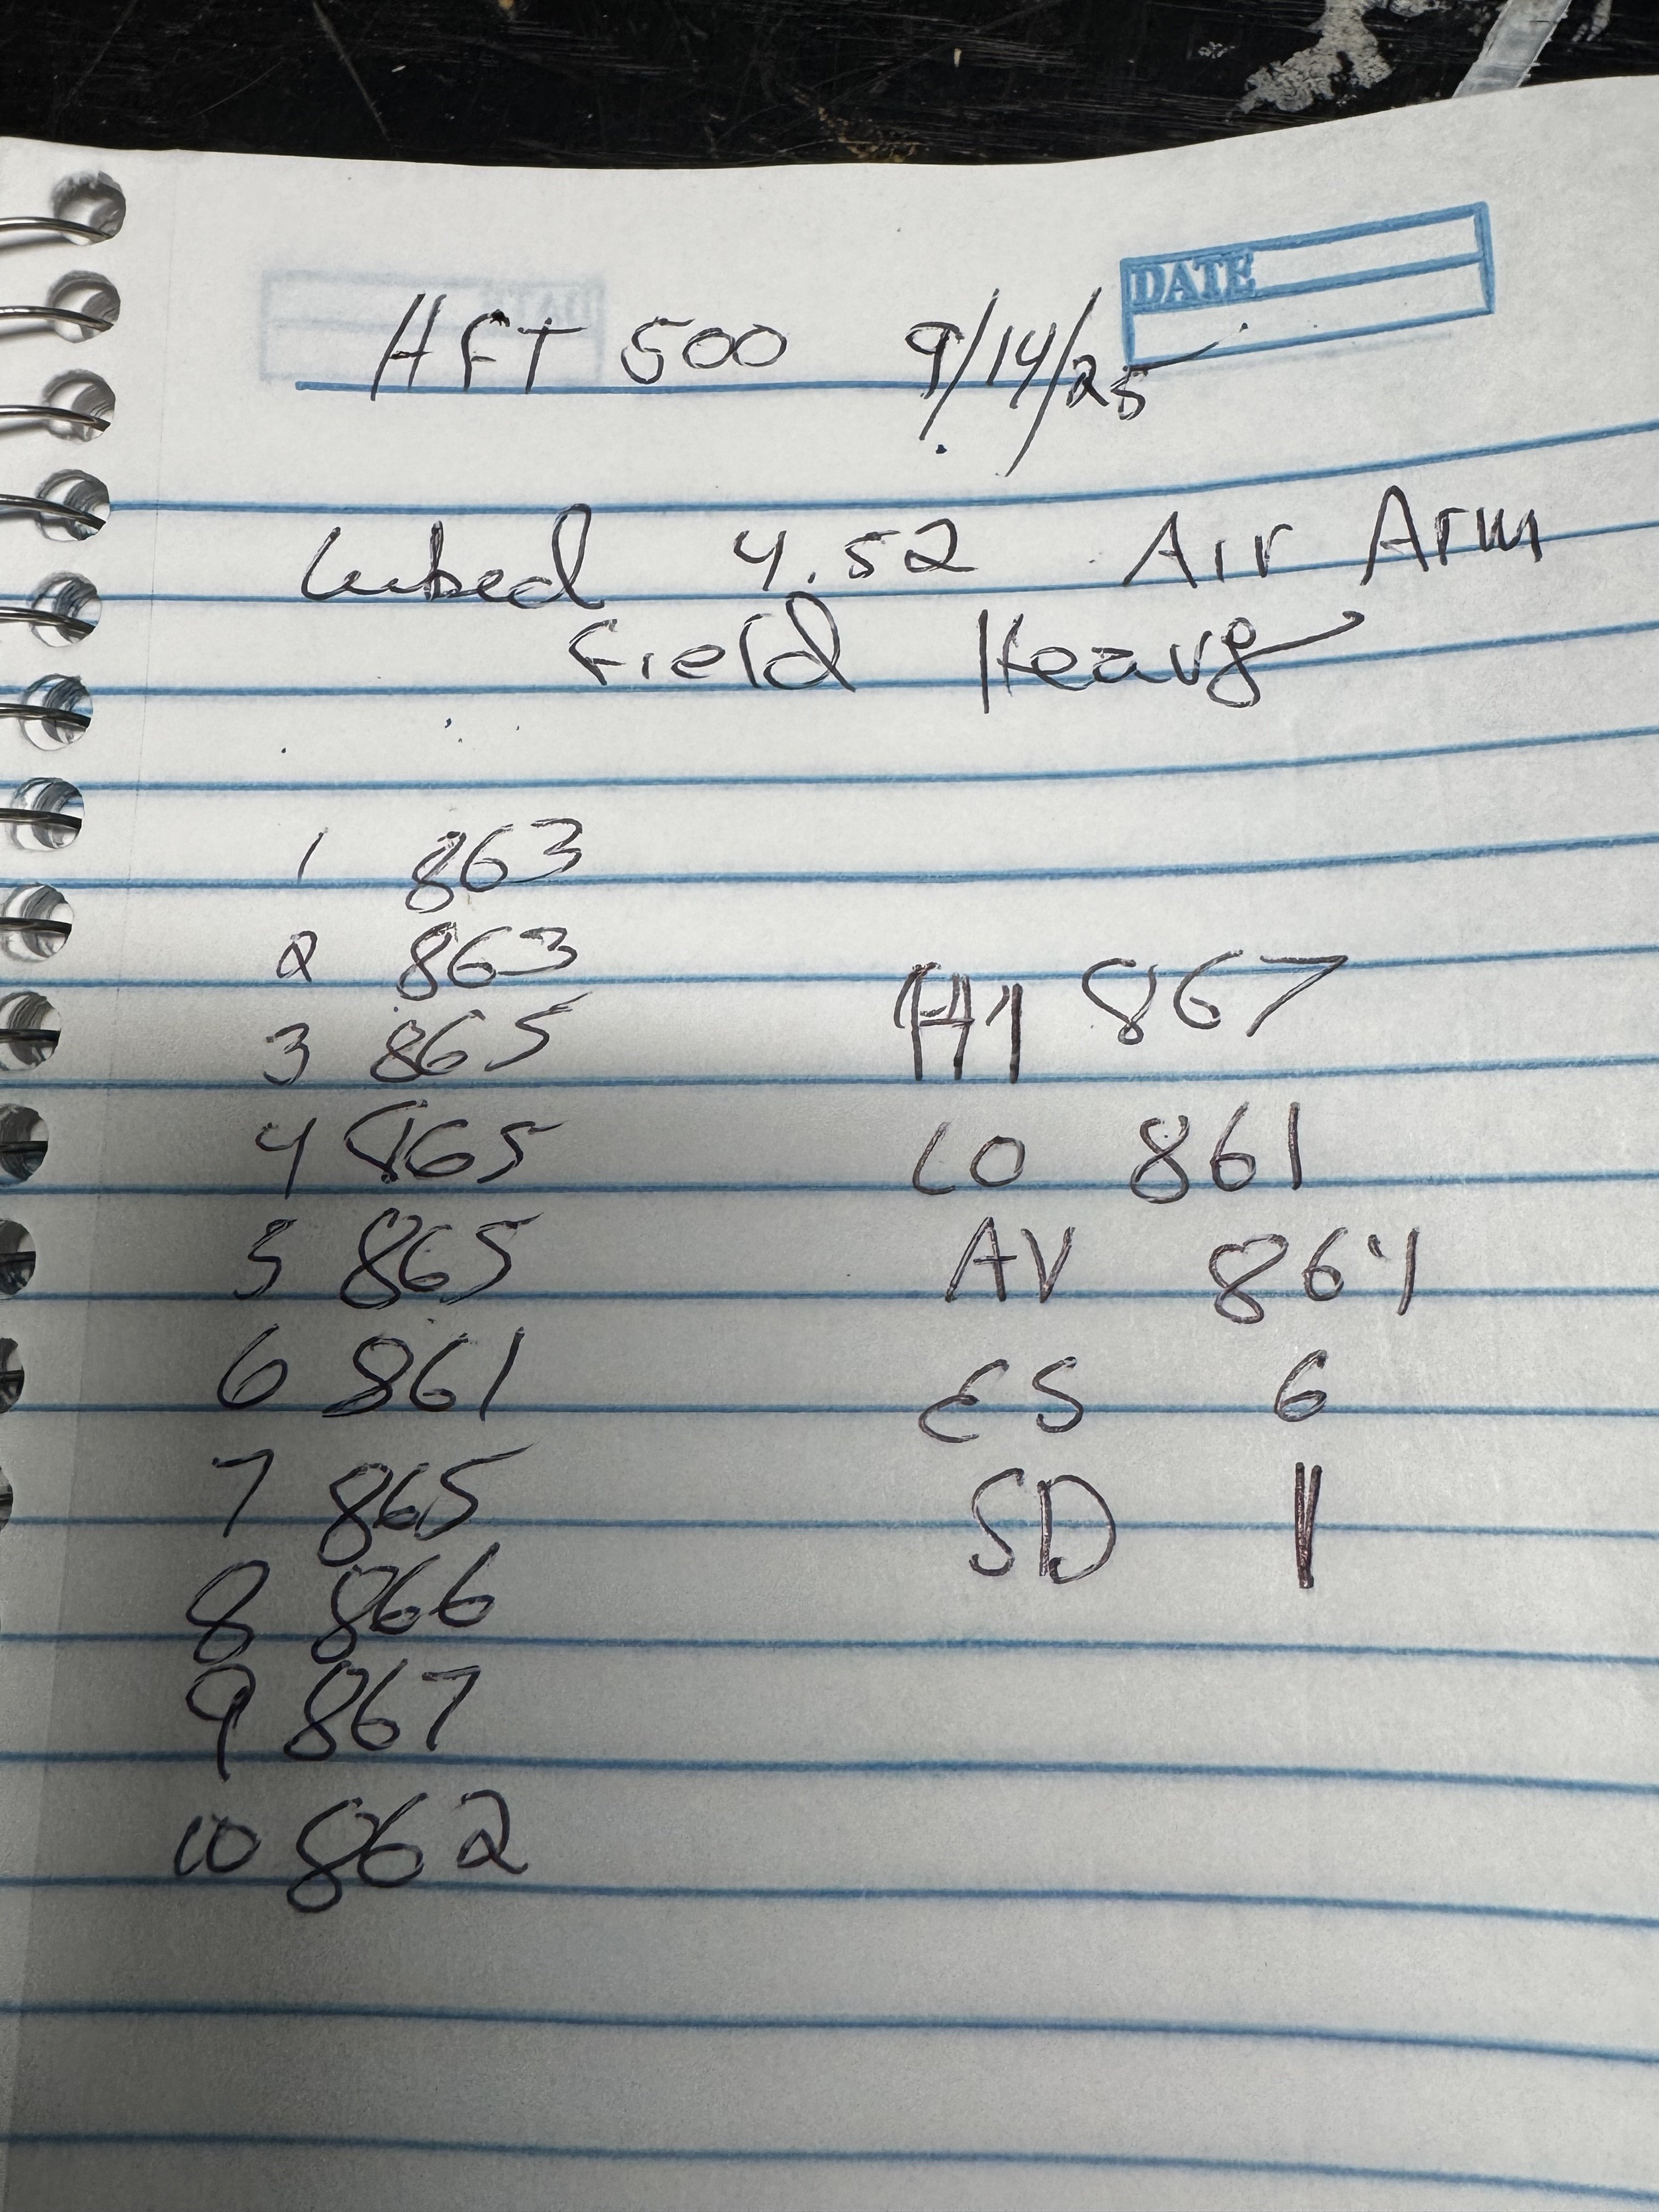 DATE
HFT 500 9/14/25
Lubed 4.52 Air Arm
Field Heavy
1 863
2 863
3 865
4 865
5 865
6 861
7 865
8 866
9 867
10 862
HI 867
LO 861
AV 864
ES 6
SD 1